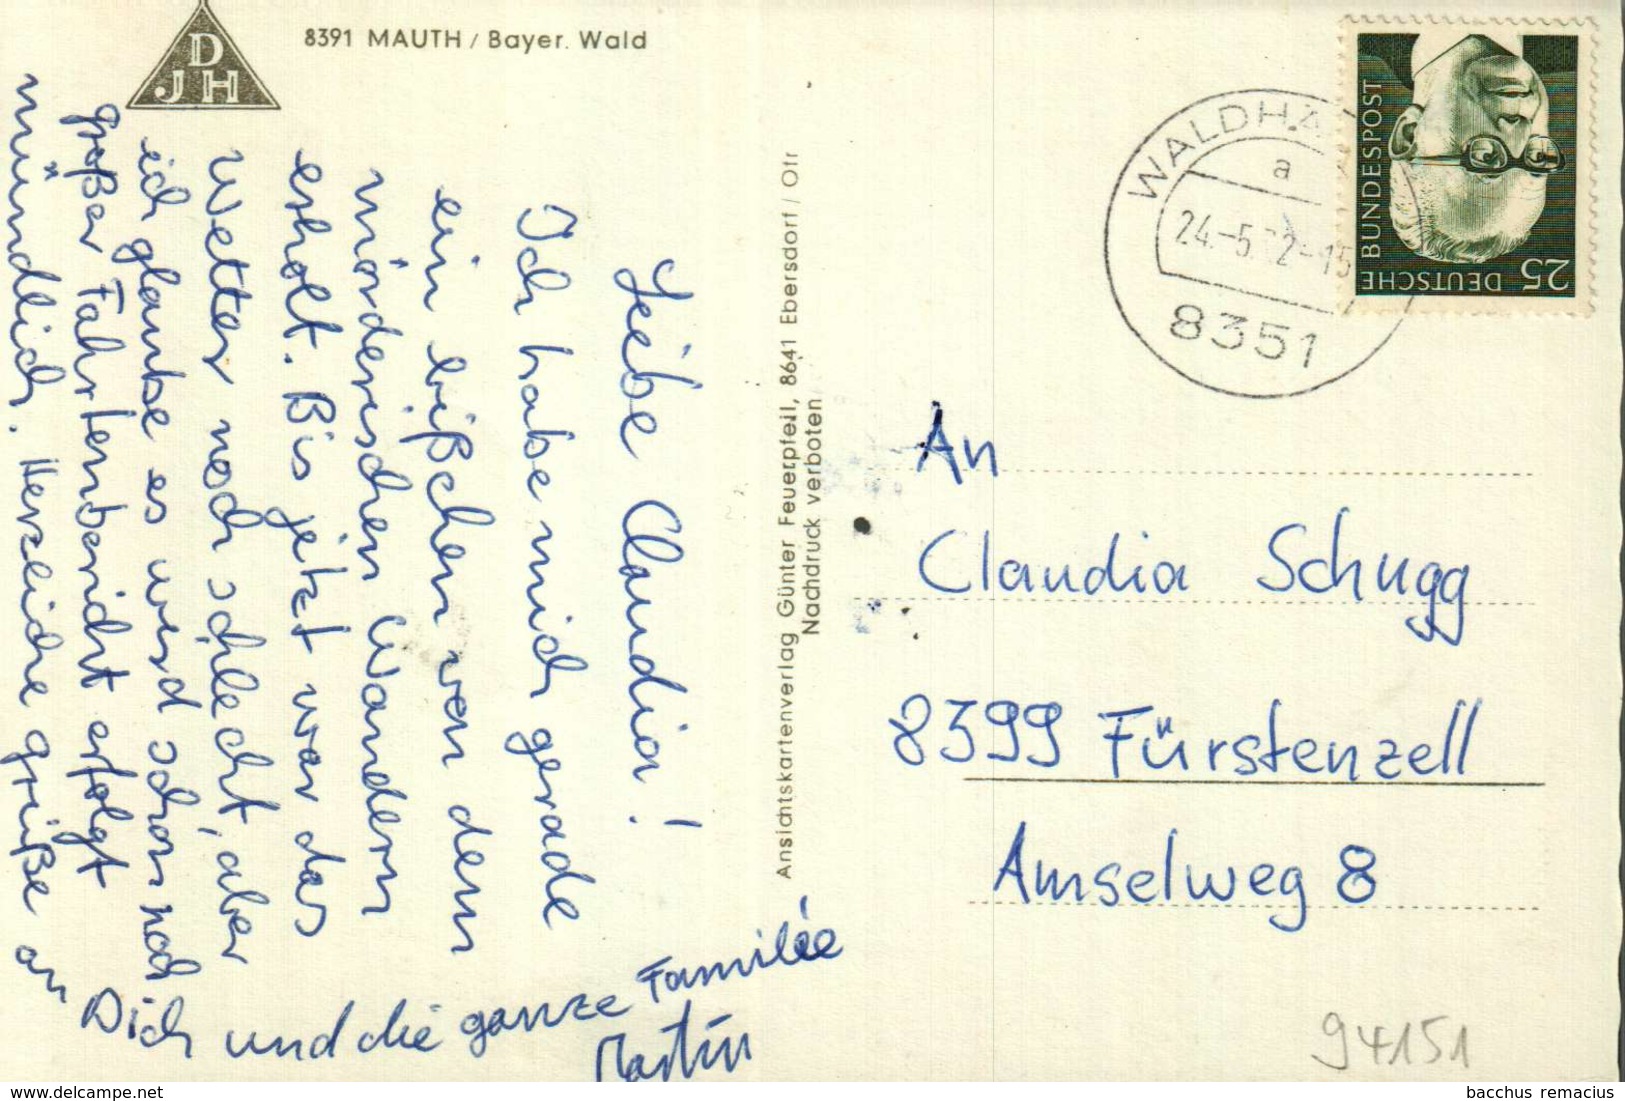 DJH
8391 MAUTH / Bayer. Wald
Liebe Claudia!
Ich habe mich gerade
ein bißchen von dem
mörderischen Wandern
erholt. Bis jetzt war das
Wetter noch schlecht, aber
ich glaube es wird schon noch
großer Fahrtenbericht erfolgt
mündlich. Herzliche Grüße an
Dich und die ganze Familie
Martin
Ansichtskartenverlag Günter Feuerpfeil, 8641 Ebersdorf / Ofr
Nachdruck verboten
WALDHÄ
a
24.-5. 2-15
8351
DEUTSCHE BUNDESPOST
25
An
Claudia Schugg
8399 Fürstenzell
Amselweg 8
94151
http://www.delcampe.net
bacchus remacius